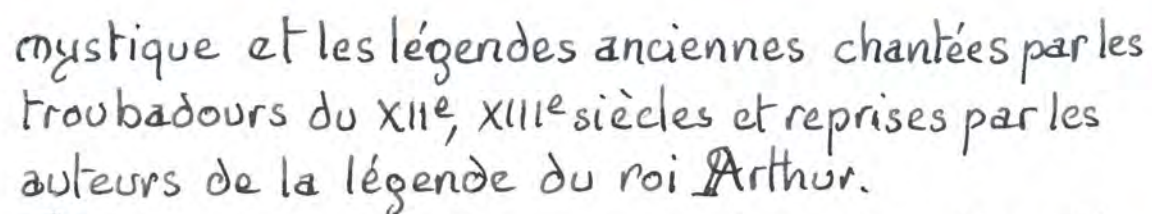 mystique et les légendes anciennes chantées par les
troubadours du XIIe, XIIIe siècles et reprises par les
auteurs de la légende du roi Arthur.